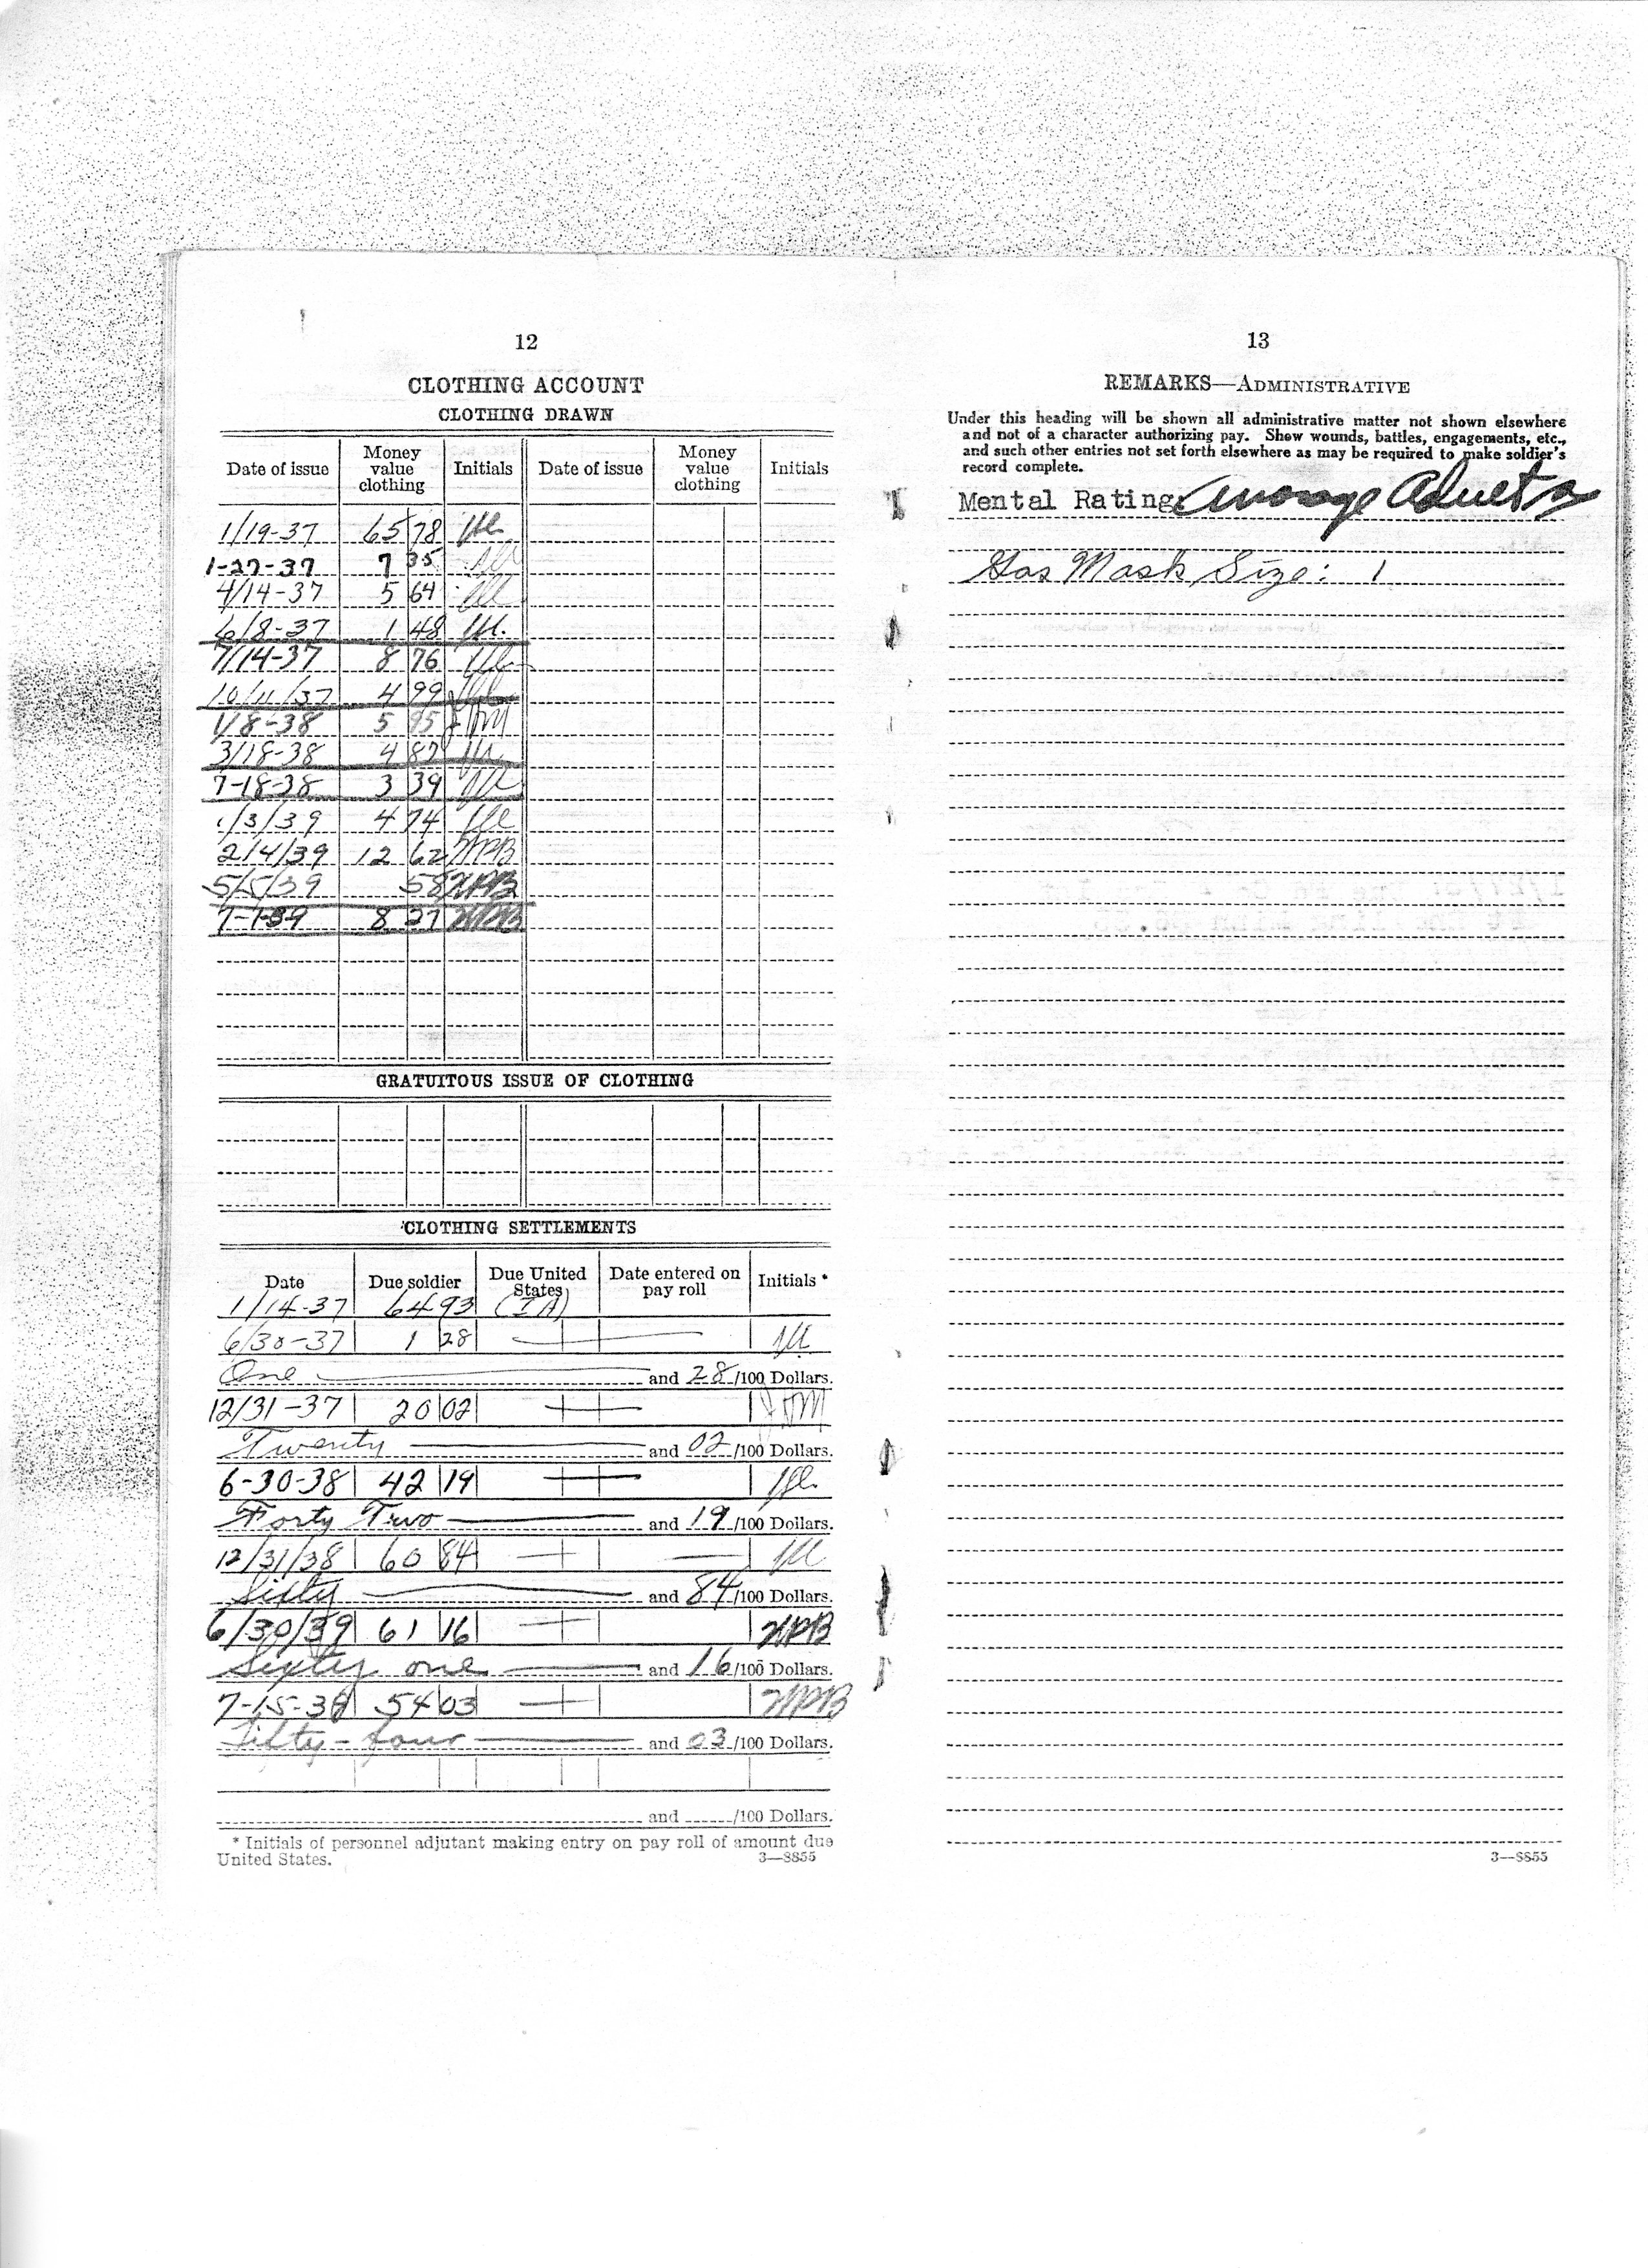 12
CLOTHING ACCOUNT
CLOTHING DRAWN
Date of issue Money value clothing Initials Date of issue Money value clothing Initials
1/19-37 65 78
1-27-37 7 35
4/14-37 5 64
6/8-37 1 48
7/14-37 8 76
10/11/37 4 99
1/8-38 5 95
3/18-38 4 87
7-18-38 3 39
1/3/39 4 74
2/4/39 12 62 HPB
5/5/39 58 HPB
7-1-39 8 27 HPB
GRATUITOUS ISSUE OF CLOTHING
CLOTHING SETTLEMENTS
Date Due soldier Due United States Date entered on pay roll Initials *
1/14-37 64 93 (IA)
6/30-37 1 28
One and 28/100 Dollars.
12/31-37 20 02
Twenty and 02/100 Dollars.
6-30-38 42 19
Forty Two and 19/100 Dollars.
12/31/38 60 84
Sixty and 84/100 Dollars.
6/30/39 61 16 HPB
Sixty one and 16/100 Dollars.
7-15-39 54 03 HPB
Fifty-four and 03/100 Dollars.
and /100 Dollars.
* Initials of personnel adjutant making entry on pay roll of amount due
United States. 3—8855
13
REMARKS—ADMINISTRATIVE
Under this heading will be shown all administrative matter not shown elsewhere
and not of a character authorizing pay. Show wounds, battles, engagements, etc.,
and such other entries not set forth elsewhere as may be required to make soldier's
record complete.
Mental Rating Average Adult
Gas Mask Size: 1
3—8855